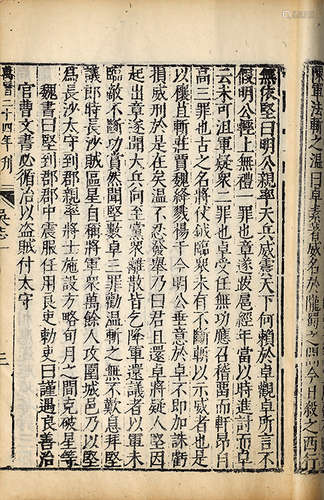 陳軍法斬之溫曰卓素著威名於隴蜀之間今日殺之西行
無依堅曰明公親率天兵威震天下何賴於卓觀卓所言不
假明公輕上無禮一罪也章遂跋扈經年當以時進討而卓
云未可沮軍疑衆二罪也卓受任無功應召稽留而軒昂自
高三罪也古之名將仗鉞臨衆未有不斷斬以示威者也是
以穰苴斬莊賈魏絳戮楊干今明公垂意於卓不即加誅虧
損威刑於是在矣溫不忍發舉乃曰君且還卓將疑人堅因
起出章遂聞大兵向至黨衆離散皆乞降軍還議者以軍未
臨敵不斷功賞然聞堅數卓三罪勸溫斬之無不歎息拜堅
議郎時長沙賊區星自稱將軍衆萬餘人攻圍城邑乃以堅
爲長沙太守到郡親率將士施設方略旬月之間克破星等
魏書曰堅到郡郡中震服任用良吏勑吏曰謹遇良善治
官曹文書必循治以盜賊付太守
萬曆二十四年刊
吳志
三